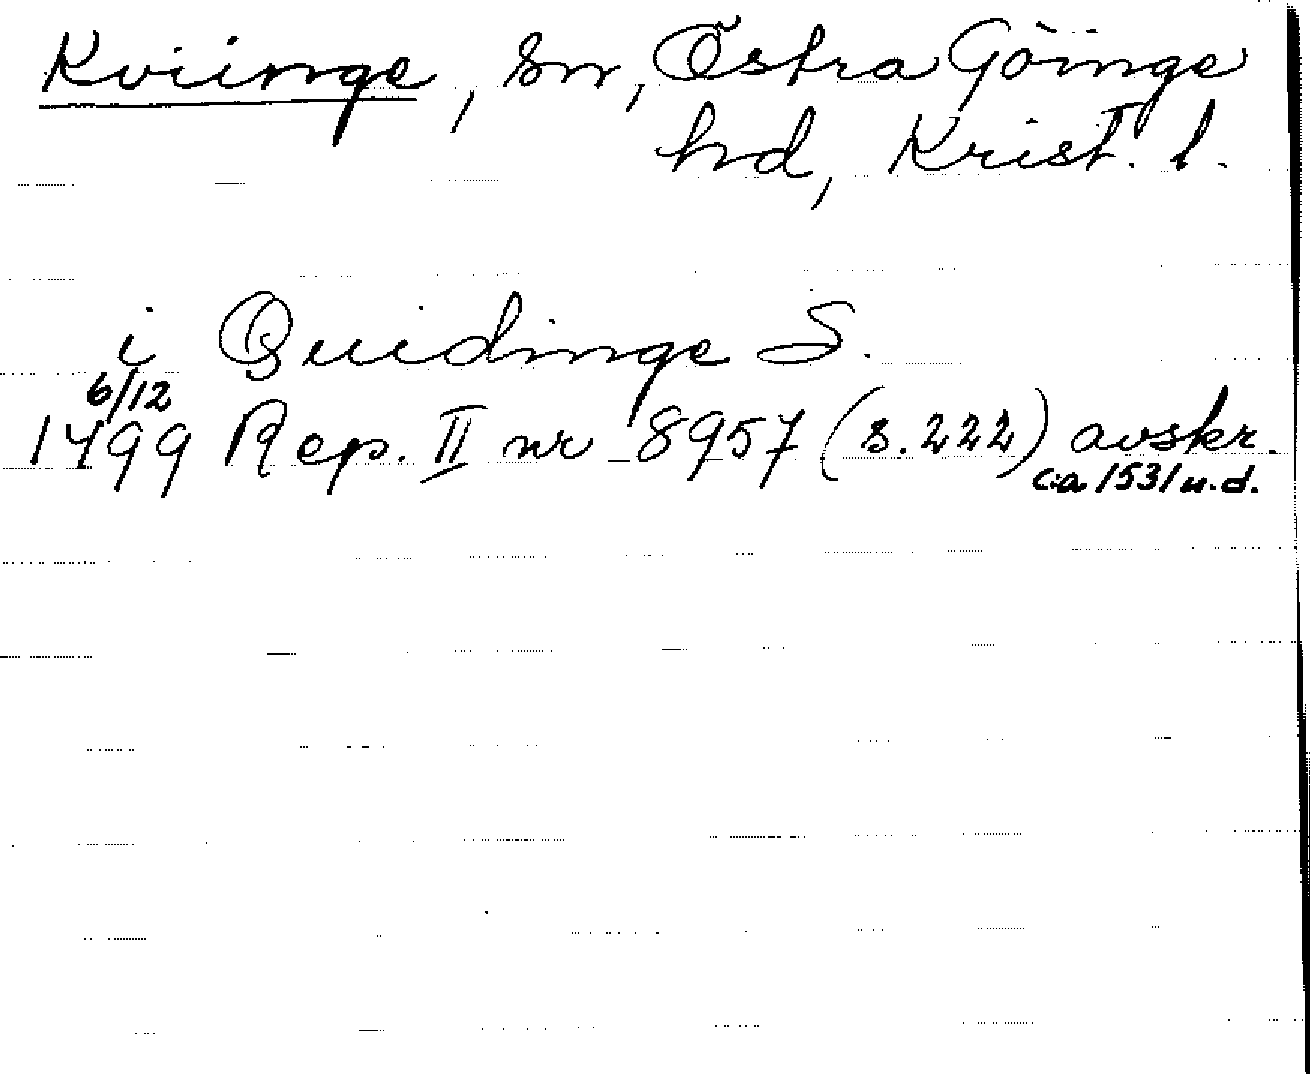 Kviinge, sn, Östra Göinge
hd, Krist. l.
i Quidinge S.
6/12
1499 Rep. II nr 8957 (s. 222) avskr.
ca 1531 u.d.